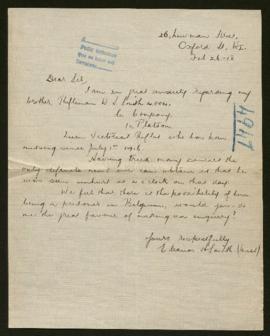 26, Newman Street,
Oxford St. W.1.
Feb 26-18
Dear Sir,
I am in great anxiety regarding my
brother Rifleman W S Smith
Company
Platoon
Queen Victoria's Rifles who has been
missing since July 1st 1916.
Having tried many sources the
only definite news we can obtain is that he
was seen unhurt at o'clock on that day.
We feel that there is the possibility of him
being a prisoner in Belgium, would you do
me the great favour of making an enquiry?
Yours respectfully
Eleanor Smith (Miss)
4947